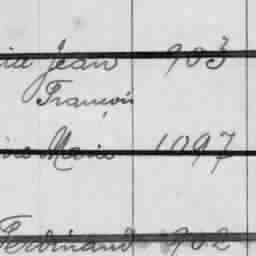 Jean 903
François
Marie 1097
Ferdinand 902